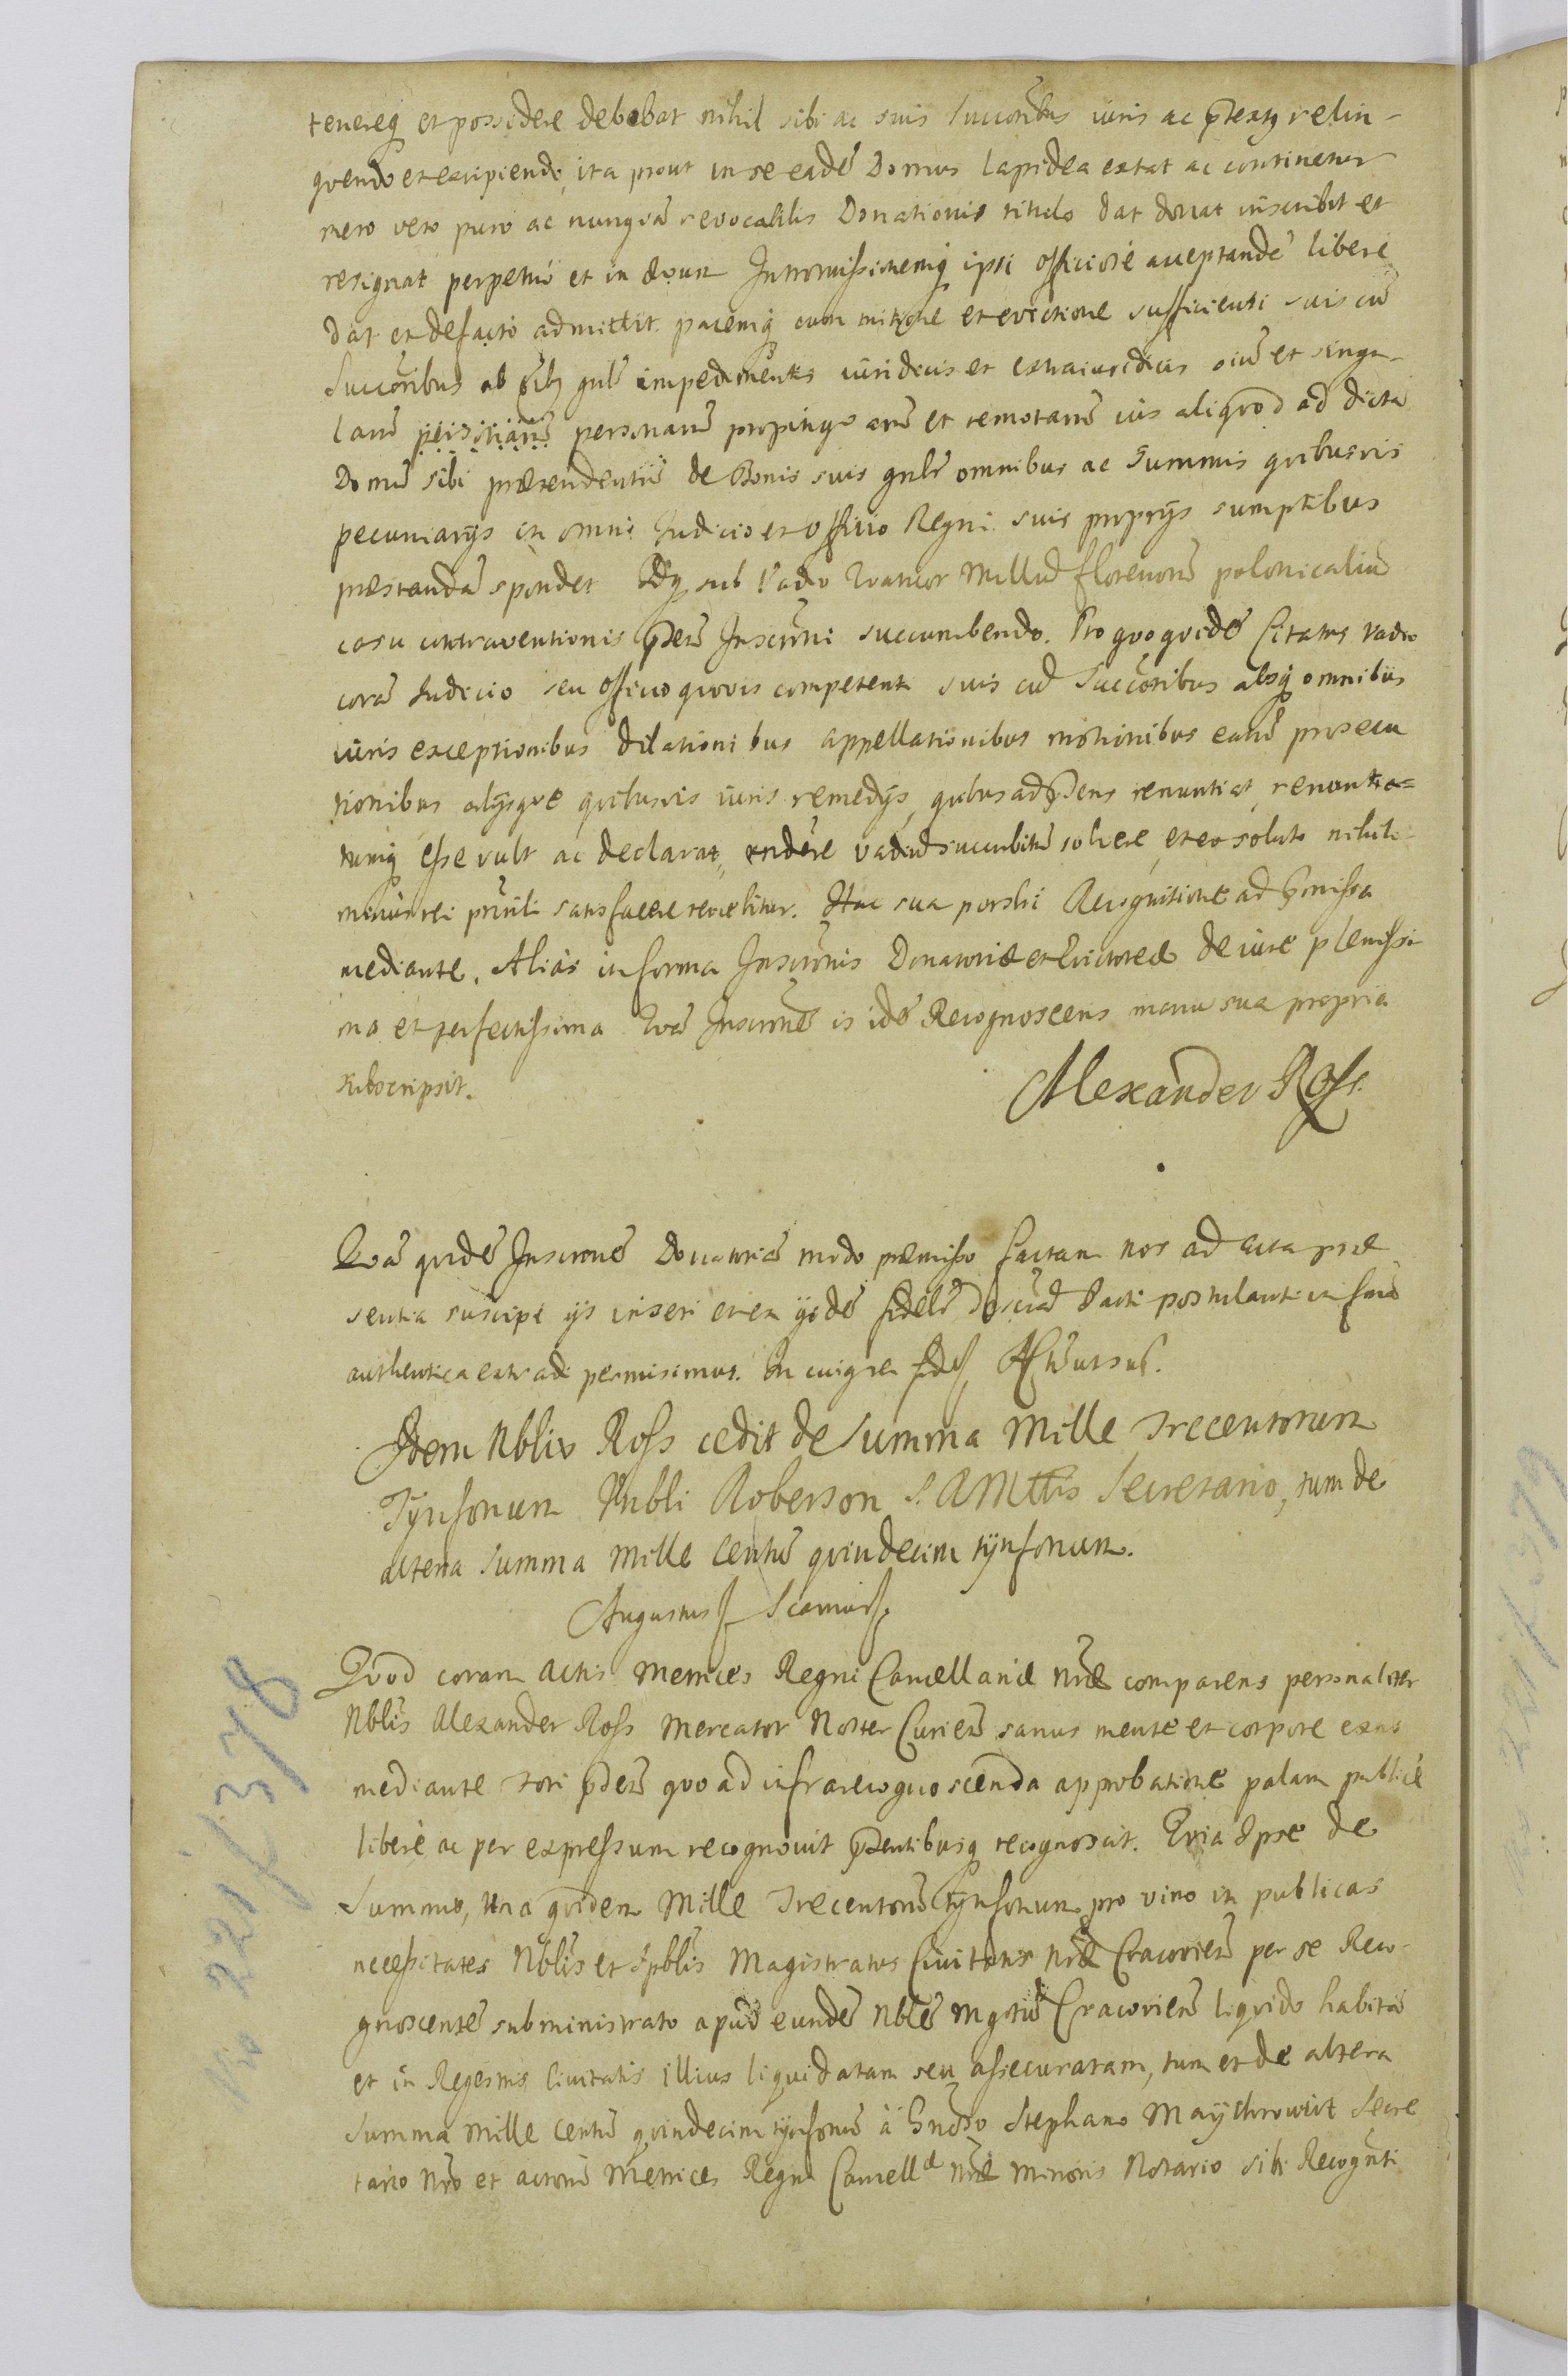 tenereq et possidere debebat nihil sibi ac suis succoribus iuris ac ptextus relin-
quendo et excipiendo, ita prout in se eadē Domus Lapidea extat ac continetur
mero vero puro ac nunquā revocabilis Donationis titulo dat donat inscribit et
resignat perpetuo et in ævum Intromissionemq ipsi officiose acceptandē libere
dat et defacto admittit. pacemq cum mitione et evictione sufficienti suis cū
Succoribus ab oībus gnlr impedimentis iuridicis et extraiuridicis oiū et singu-
larū personarū personarū propinquarū et remotarū ius aliquod ad dictā
Domū sibi prætendentiū de Bonis suis gnlr omnibus ac Summis quibusvis
pecuniarijs in omni Iudicio et Officio Regni suis proprijs sumptibus
præstandā spondet Idq sub Vadio Quatuor Milliū florenorū polonicaliū
casu contraventionis pntis Inscrōni succumbendo. Pro quo quidē Citatus vadio
corā Iudicio seu Officio quovis competenti suis cū Succoribus absq omnibus
iuris exceptionibus dilationibus appellationibus motionibus earū prosecu
tionibus alijsque quibusvis iuris remedijs, quibus ad pntens renuntiat, renuntia=
tumq esse vult ac declarat, vadiū succubitū solvere, et eo soluto nihilo
minus rei prīncli satisfacere tenebitur. Hac sua porshi Recognitione ad pmissa
mediante. Aliàs in forma Inscrōnis Donatoriæ et Evictoreæ de iure plenissi
ma et perfectissima Quā Inscrōnē is idē Recognoscens manu sua propria
subscripsit.
Alexander Ross.
Quā quidē Inscrōnē Donatoriā modo præmisso factam nos ad acta præ
sentia suscipi ijs inseri et ex ijsdē fidelr Descriptā Parti postulanti in formā
authentica extradi permisimus. In cuius rei fidē
Idem Nblis Ross cedit de Summa Mille Trecentorum
Tynforum Nobli Roberson S. R. Mttis Secretario, tum de
altera summa Mille Centū quindecim tynforum.
Augustus
Quod coram Actis Metrices Regni Cancellariæ Nræ comparens personaliter
Nblis Alexander Ross Mercator Noster Curien̄ sanus mente et corpore exns
mediante fori pntis quo ad infrarecognoscenda approbatione palam publicè
liberè ac per expressum recognovit pntibusq recognoscit. Quia Ipse de
Summis, Una quidem Mille Trecentorū tynforum pro vino in publicas
necessitates Nblis et Spblis Magistratus Civitatis Nræ Cracovien̄ per se Reco-
gnoscentē subministrato apud eundē Nblē Mgrtū Cracovien̄ liquido habitā
et in Regestris Civitatis illius liquidatam seu assecuratam, tum et de altera
Summa Mille Centū quindecim tynforū à Gnoso Stephano Maychrowit Secre
tario Nro et actorū Metrices Regni Cancell æ Nræ Minoris Notario sibi Recognti